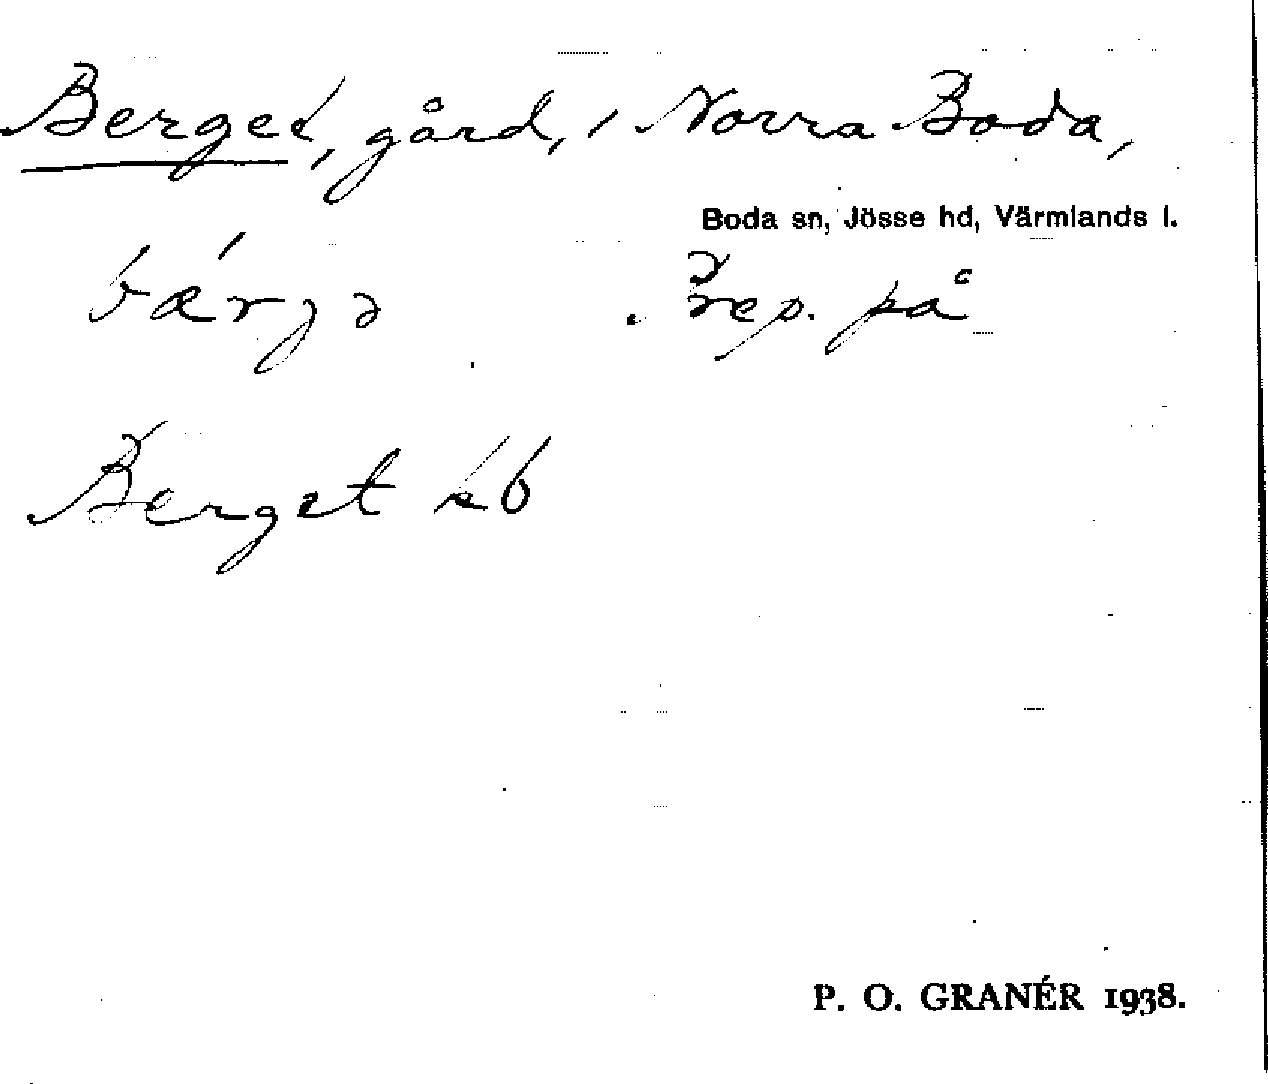 Berget, gård, i Norra Boda,
Boda sn, Jösse hd, Värmlands l.
bærjə Prep. på
Berget kb
P. O. GRANÉR 1938.